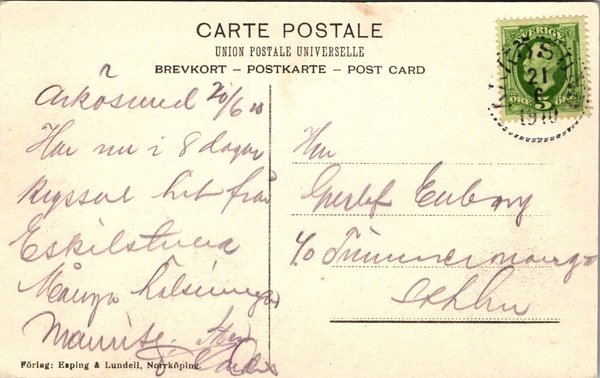 CARTE POSTALE
UNION POSTALE UNIVERSELLE
BREVKORT – POSTKARTE – POST CARD
SVERIGE
ÖRE 5
21
6
1910
Arkösund 20/6 10
Har nu i 8 dagar
hit från
Eskilstuna
Många hälsningar
Maurits.
Hrr
c/o Timmerman
Sthlm
Förlag: Esping & Lundell, Norrköping.